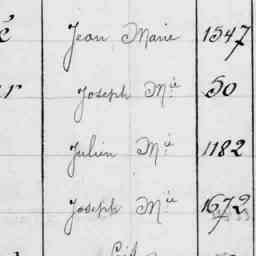 é Jean Marie 1547
r Joseph Mie 50
Julien Mie 1182
Joseph Mie 1672